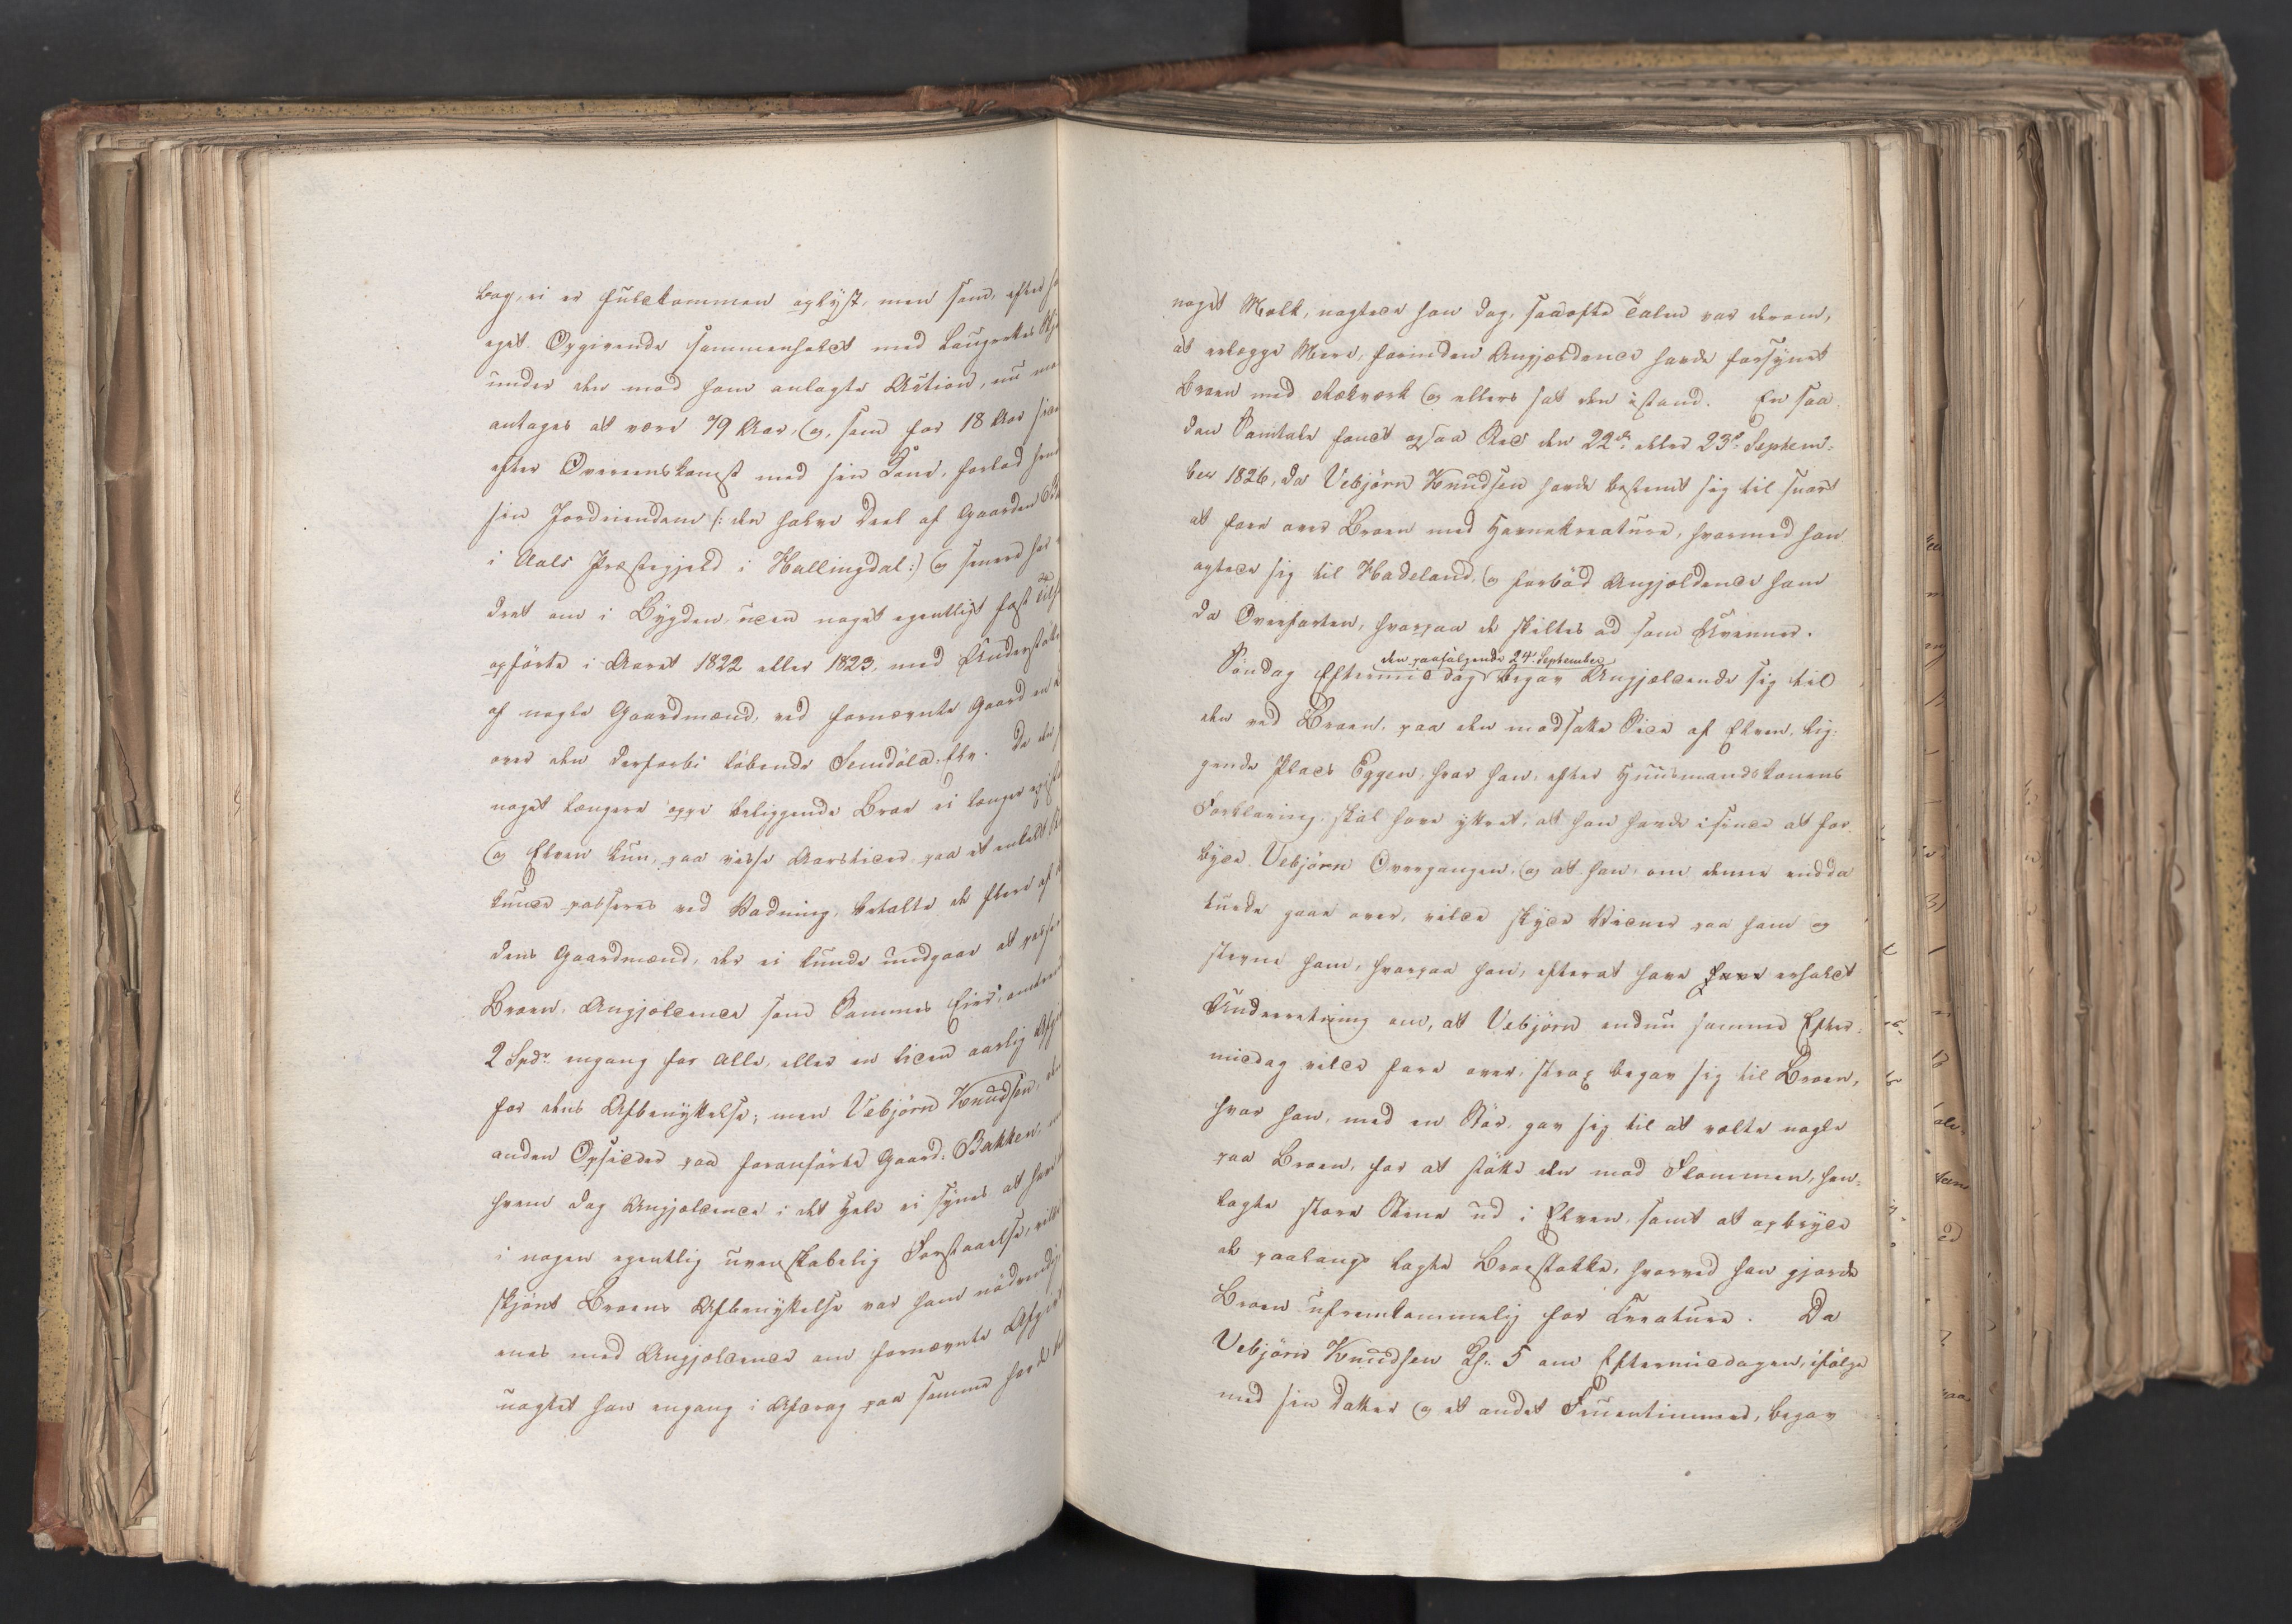 bog, ei er fuldkommen oplyst, men som, efter
eget Opgivende sammenholdt med Laugrettes
under den mod ham anlagte Action, nu
antages at være 79 Aar, og, som for 18 Aar
efter Overeenskomst med sin Sön, forlod
sin Jordeiendom /: den halve Deel af Gaarden
i Aals Præstegjeld i Hallingdal :/ og senere har
dret om i Bygden uden noget egentligt fast
opförte i Aaret 1822 eller 1823, med Understöttelse
af nogle Gaardmænd, ved fornævnte Gaard en
over den derforbi löbende Semdöla-Elv. Da
noget længere oppe beliggende Broe ei længer
og Elven kun, paa visse Aarstider paa et enkelt
kunde passeres ved Vadning, betalte de flere af
dens Gaardmænd, der ei kunde undgaae at passere
Broen, Angjeldende som Sammes Eier,
2 Spd. engang for Alle, eller en liden aarlig
for dens Afbenyttelse; men Vebjörn Knudsen,
anden Opsidder paa foranförte Gaard Bakken,
hvem dog Angjeldende i det Hele ei synes at have
i nogen egentlig uvenskabelig Forstaaelse,
skjönt Broens Afbenyttelse var ham nödvendig
enes med Angjeldende om fornævnte Afgift
uagtet han engang i Afdrag paa samme havde
noget Malt, nægtede han dog, saaofte Talen var derom,
at erlægge Mere, forinden Angjeldende havde forsynet
Broen med Rækværk og ellers sat den istand. En saa-
dan Samtale fandt ogsaa Sted den 22de eller 23de Septem-
ber 1826, da Vebjörn Knudsen havde bestemt sig til snart
at fare over Broen med Havnekreature, hvormed han
agtede sig til Hadeland, og forböd Angjeldende ham
da Overfarten, hvorpaa de skiltes ad som Uvenner.
den paafölgende 24de September
Söndag Eftermiddag begav Angjeldende sig til
den ved Broen, paa den modsatte Side af Elven, lig-
gende Plads Eggen, hvor han, efter Huusmandskonens
Forklaring, skal have yttret, at han havde isinde at for-
byde Vebjörn Overgangen, og at han, om denne endda
turde gaae over, vilde skyde Vidner paa ham og
stevne ham, hvorpaa han, efterat have have erholdt
Underretning om, at Vebjörn endnu samme Efter-
middag vilde fare over, strax begav sig til Broen,
hvor han, med en Stör, gav sig til at vælte nogle
paa Broen, for at stötte den mod Flommen, hen-
lagte store Stene ud i Elven, samt at opbryde
de paalangs lagte Broestokke, hvorved han gjorde
Broen ufremkommelig for Creature. Da
Vebjörn Knudsen Kl. 5 om Eftermiddagen, ifölge
med sin Datter og et andet Fruentimmer, begav